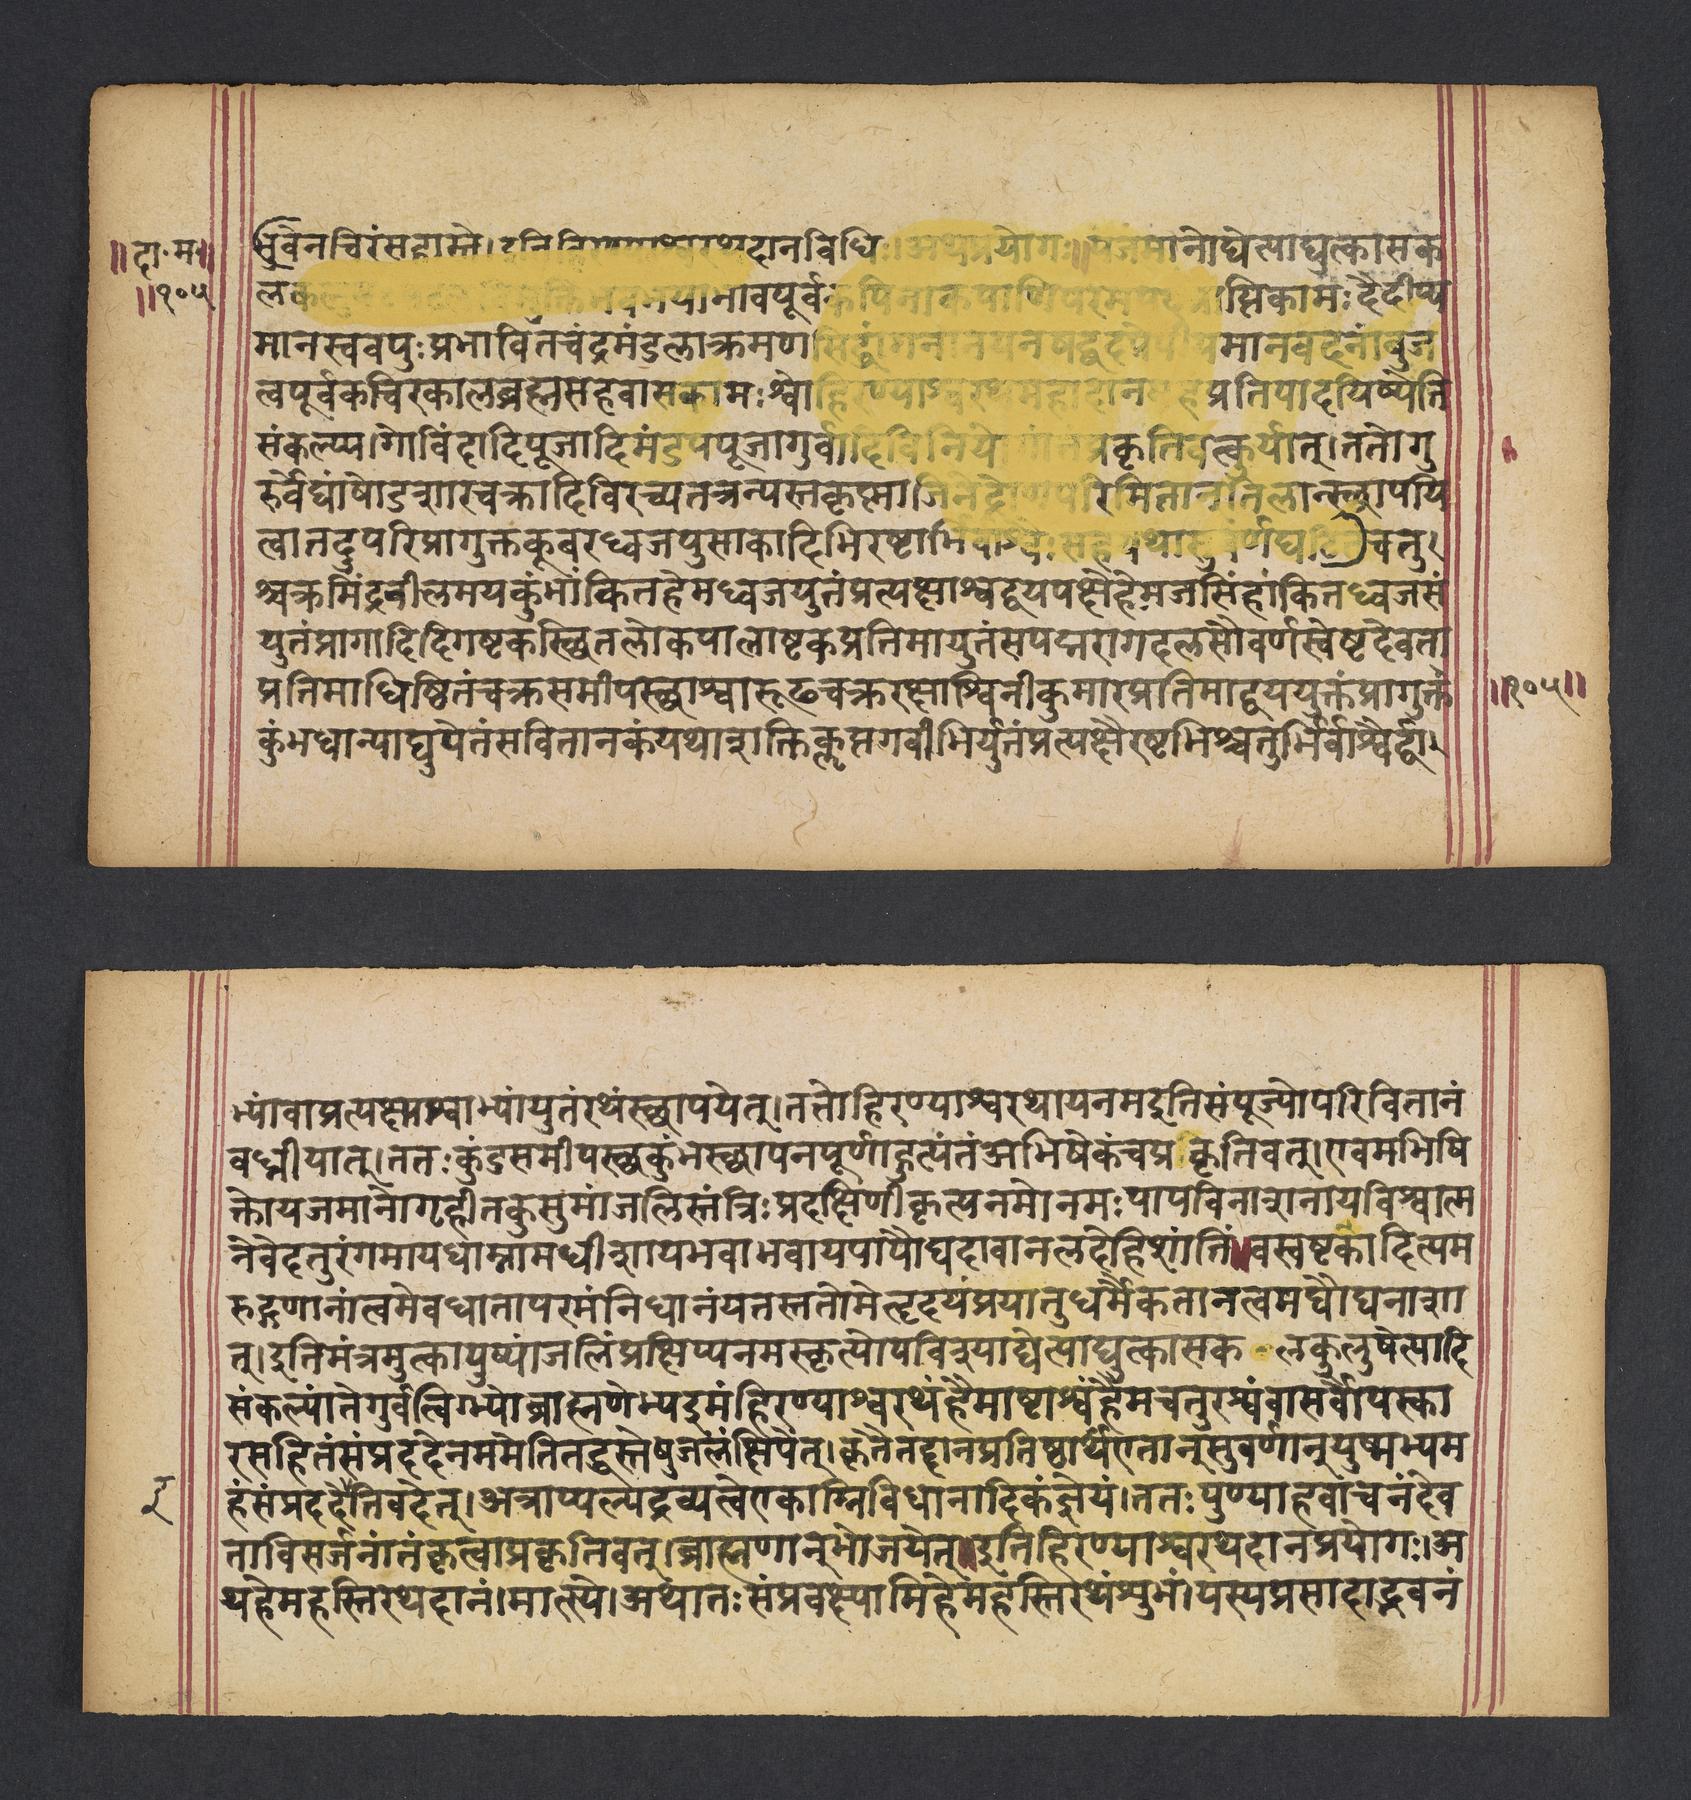 ॥दा॰म॥
॥१०५
भुवेनचिरंसहास्ते।इतिहिरण्याश्वरथदानविधिः।अथप्रयोगः॥यजमानोद्येत्याद्युत्कासक
लक भवभयाभावपूर्वकपिनाकपाणिपरमपद प्तिकामः देदीप्य
मानस्ववपुःप्रभावितचंद्रमंडलाक्रमणसिद्धांगनानयनषट्पदपेपीयमानवदनांबुज
त्वपूर्वकचिरकालब्रह्मसहवासकामःश्वोहिरण्याश्वरथमहादानमहंप्रतिपादयिष्येति
संकल्प्य।गोविंदादिपूजादिमंडपपूजागुर्वादिविनियोगांतंप्रकृतिवत्कुर्यात्।ततोगु
रुर्वेद्यांषोडशारचक्रादिविरच्यतत्रन्यस्तकृष्णाजिनेद्रोणपरिमितानांतिलान्स्थापयि
त्वातदुपरिप्रागुक्तकूबरध्वजपुसाकादिभिरष्टाभिर्वाश्वैःसहयथासुवर्णघटितंचतु
श्चक्रमिंद्रनीलमयकुंभांकितहेमध्वजयुतंप्रत्यक्षाश्वद्वयपक्षेहैमजसिंहांकितध्वजसं
युतंप्रागादिदिगष्टकस्थितलोकपालाष्टकप्रतिमायुतंसपद्मरागदलसौवर्णस्वेष्टदेवता
प्रतिमाधिष्ठितंचक्रसमीपस्थाश्वारूढचक्ररक्षाश्विनीकुमारप्रतिमाद्वययुक्तंप्रागुक्तं
॥१०५॥
कुंभधान्याद्युपेतंसवितानकंयथाशक्तिकॢप्तगवीभिर्युतंप्रत्यक्षैरष्टभिश्चतुर्भिर्वाश्वैर्द्वा
भ्यांवाप्रत्यक्षाश्वाभ्यांयुतंरथंस्थापयेत्।ततोहिरण्याश्वरथायनमइतिसंपूज्योपरिवितानं
बध्नीयात्।ततःकुंडसमीपस्थकुंभस्थापनपूर्णाहुत्यंतंअभिषेकंचप्रकृतिवत्।एवमभिषि
क्तोयजमानोगृहीतकुसुमांजलिस्तंत्रिःप्रदक्षिणीकृत्यनमोनमःपापविनाशनायविश्वात्म
नेवेदतुरंगमायधाम्नामधीशायभवाभवायपापौघदावानलदेहिशांतिं॥वस्वष्टकादित्यम
रुद्गणानांत्वमेवधातापरमंनिधानंयतस्ततोमेत्हृदयंप्रयातुधर्मैकतानत्वमघौघनाशा
त्।इतिमंत्रमुत्कापुष्पांजलिंप्रक्षिप्यनमस्कृत्योपविश्याद्येत्याद्युत्कासक लकुलुषेत्यादि
संकल्पांतेगुर्वृत्विग्भ्योब्राह्मणेभ्यइमंहिरण्याश्वरथंहैमाष्टाश्वंहैमचतुरश्वंवासर्वोपस्का
रसहितंसंप्रददेनममेतितद्धस्तेषुजलंक्षिपेत्।कृतैतद्दानप्रतिष्ठार्थंएतान्सुवर्णान्युष्मभ्यम
हंसंप्रददेतिवदेत्।अत्राप्यल्पद्रव्यत्वेएकाग्निविधानादिकंज्ञेयं।ततःपुण्याहवाचनंदेव
ताविसर्जनांतंकृत्वाप्रकृतिवत्।ब्राह्मणान्भोजयेत्॥इतिहिरण्याश्वरथदानप्रयोगः।अ
थहेमहस्तिरथदानं।मात्स्ये।अथातःसंप्रवक्ष्यामिहेमहस्तिरथंश्युभं।यस्यप्रसादाद्भवनं